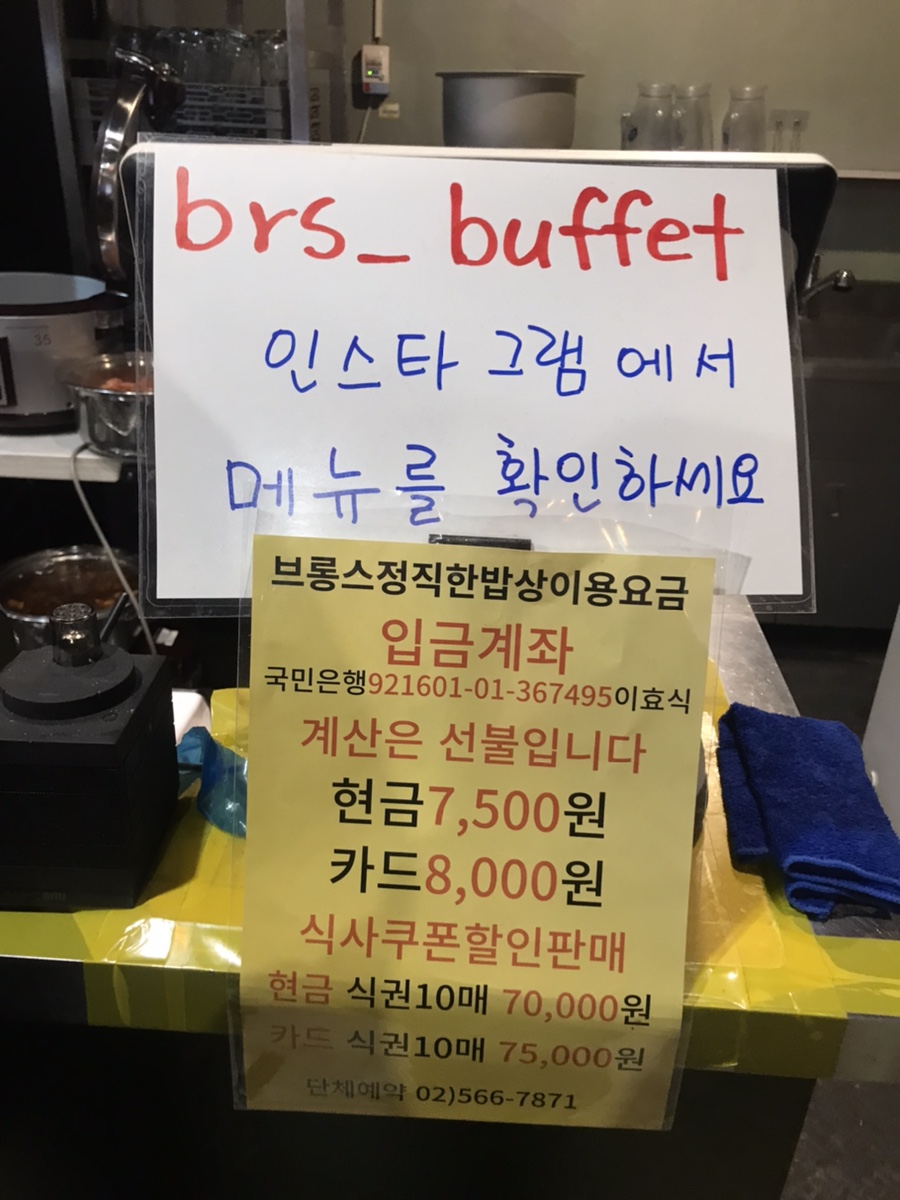 brs_buffet
인스타그램에서
메뉴를 확인하세요
브롱스정직한밥상이용요금
입금계좌
국민은행921601-01-367495이효식
계산은 선불입니다
현금7,500원
카드8,000원
식사쿠폰할인판매
현금 식권10매 70,000원
카드 식권10매 75,000원
단체예약 02)566-7871
35